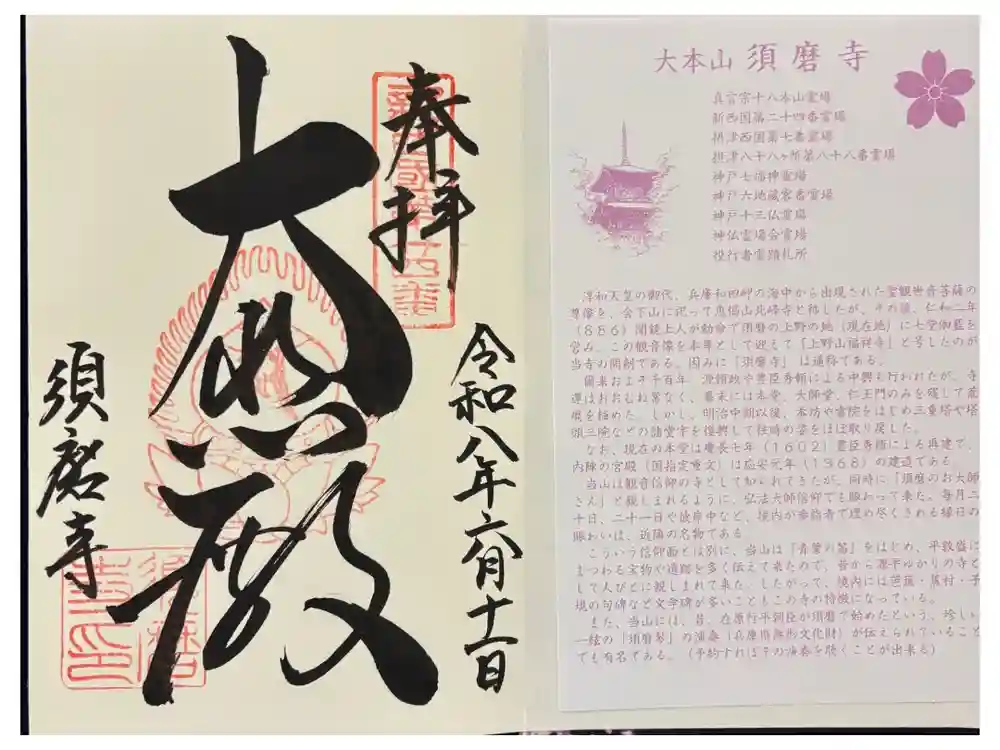 奉拝
大悲殿
須磨寺
令和八年六月十二日
須磨寺
大本山 須磨寺
真言宗十八本山霊場
新西国第二十四番霊場
摂津西国第七番霊場
摂津八十八ヶ所第八十八番霊場
神戸七福神霊場
神戸六地蔵客番霊場
神戸十三仏霊場
神仏霊場会霊場
役行者霊蹟札所
淳和天皇の御代、兵庫和田岬の海中から出現された聖観世音菩薩の
尊像を、会下山に祀って恵偈山北峰寺と称したが、その後、仁和二年
(886)聞鏡上人が勅命で須磨の上野の地(現在地)に七堂伽藍を
営み、この観音像を本尊として迎えて「上野山福祥寺」と号したのが
当寺の開創である。因みに「須磨寺」は通称である。
爾来およそ千百年、源頼政や豊臣秀頼による中興も行われたが、寺
運はおおむね客なく、幕末には本堂、大師堂、仁王門のみを残して荒
廃を極めた。しかし、明治中期以後、本坊や書院をはじめ三重塔や塔
頭三院などの諸堂宇を復興して往時の姿をほぼ取り戻した。
なお、現在の本堂は慶長七年(1602)豊臣秀頼による再建で、
内陣の宮殿(国指定重文)は応安元年(1368)の建造である。
当山は観音信仰の寺として知られてきたが、同時に「須磨のお大師
さん」と親しまれるように、弘法大師信仰でも賑わって来た。毎月二
十日、二十一日や彼岸中など、境内が参詣者で埋め尽くされる縁日の
賑わいは、近隣の名物である。
こういう信仰面とは別に、当山は『青葉の笛』をはじめ、平敦盛に
まつわる宝物や遺跡を多く伝えて来たので、昔から源平ゆかりの寺と
して人びとに親しまれて来た。したがって、境内には芭蕉・蕪村・子
規の句碑など文学碑が多いこともこの寺の特徴になっている。
また、当山には、昔、在原行平朝臣が須磨で始めたという、珍しい
一絃の「須磨琴」の演奏(兵庫県無形文化財)が伝えられていること
でも有名である。(予約すればその演奏を聴くことが出来る)